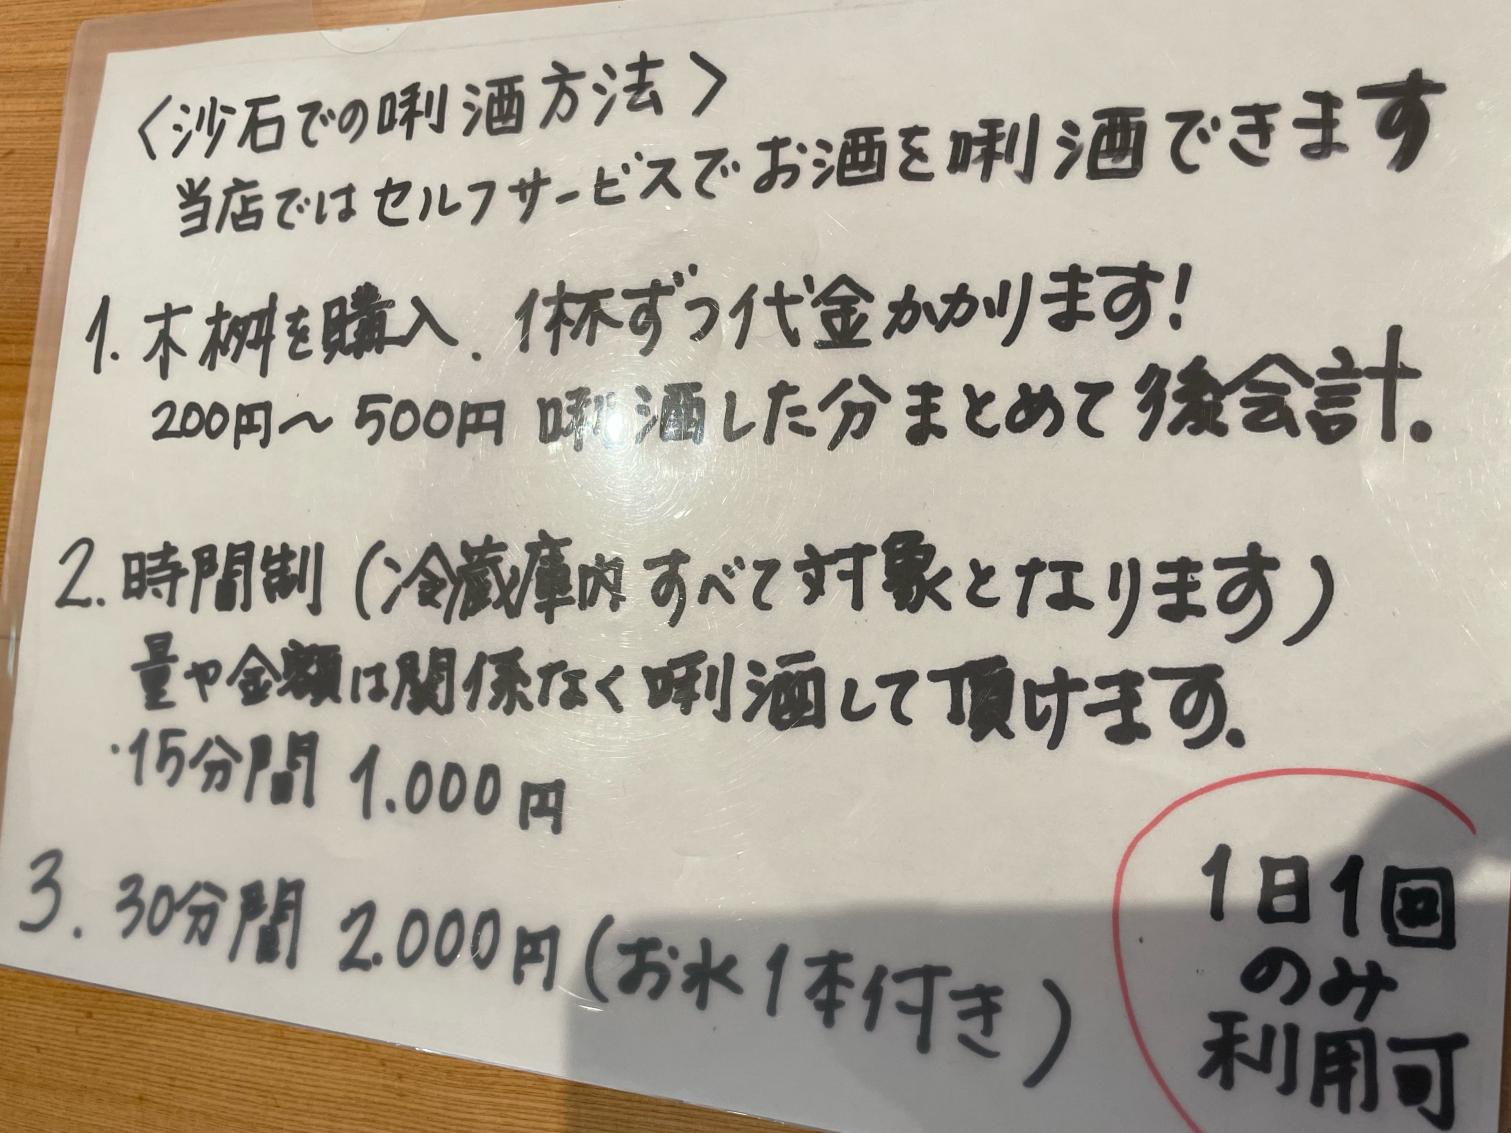 〈沙石での唎酒方法〉
当店ではセルフサービスでお酒を唎酒できます
1. 木桝を購入. 1杯ずつ代金かかります!
200円〜500円 唎酒した分まとめて後会計.
2. 時間制 (冷蔵庫内すべて対象となります)
量や金額は関係なく唎酒して頂けます.
・15分間 1.000円
3. 30分間 2.000円 (お水1本付き)
1日1回
のみ
利用可